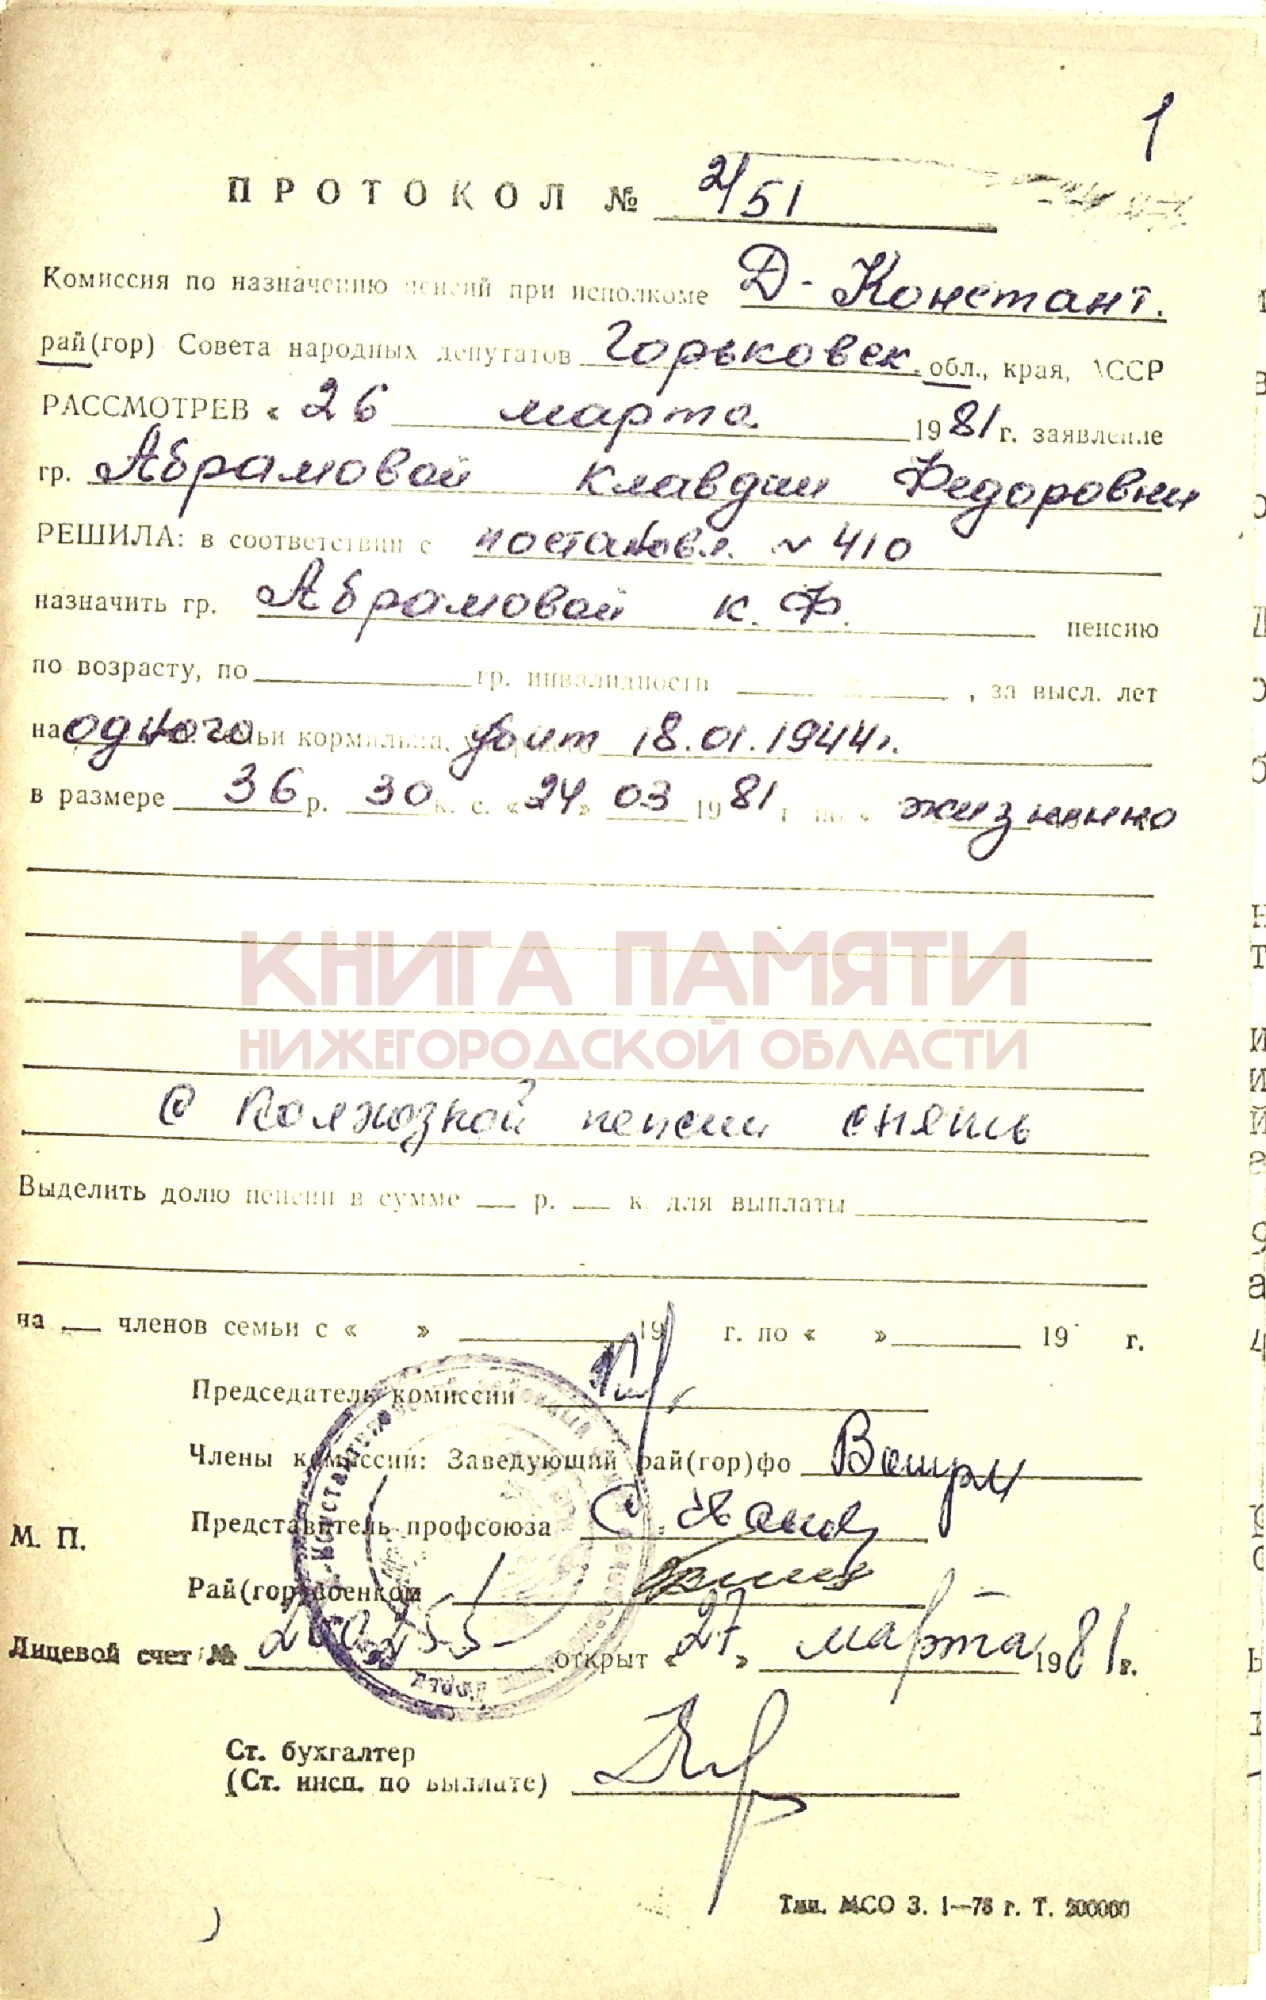 1
ПРОТОКОЛ № 2/51
Комиссия по назначению пенсий при исполкоме Д-Констант.
рай(гор) Совета народных депутатов Горьковск. обл., края, АССР
РАССМОТРЕВ « 26 марта 1981 г. заявление
гр. Абрамовой Клавдии Федоровны
РЕШИЛА: в соответствии с постановл. № 410
назначить гр. Абрамовой К. Ф. пенсию
по возрасту, по гр. инвалидности , за высл. лет
на одного семьи кормильца, убит 18.01.1944г.
в размере 36 р. 30 к. с. «24» 03 1981 г. по « жизненно
КНИГА ПАМЯТИ
НИЖЕГОРОДСКОЙ ОБЛАСТИ
С колхозной пенсии снять
Выделить долю пенсии в сумме — р. — к. для выплаты
на — членов семьи с « » 19 г. по « » 19 г.
Председатель комиссии
Члены комиссии: Заведующий рай(гор)фо
Представитель профсоюза
М. П.
Рай(гор)военком
Лицевой счет № открыт «27» марта 1981 г.
Ст. бухгалтер
(Ст. инсп. по выплате)
Тип. МСО З. 1—78 г. Т. 200000